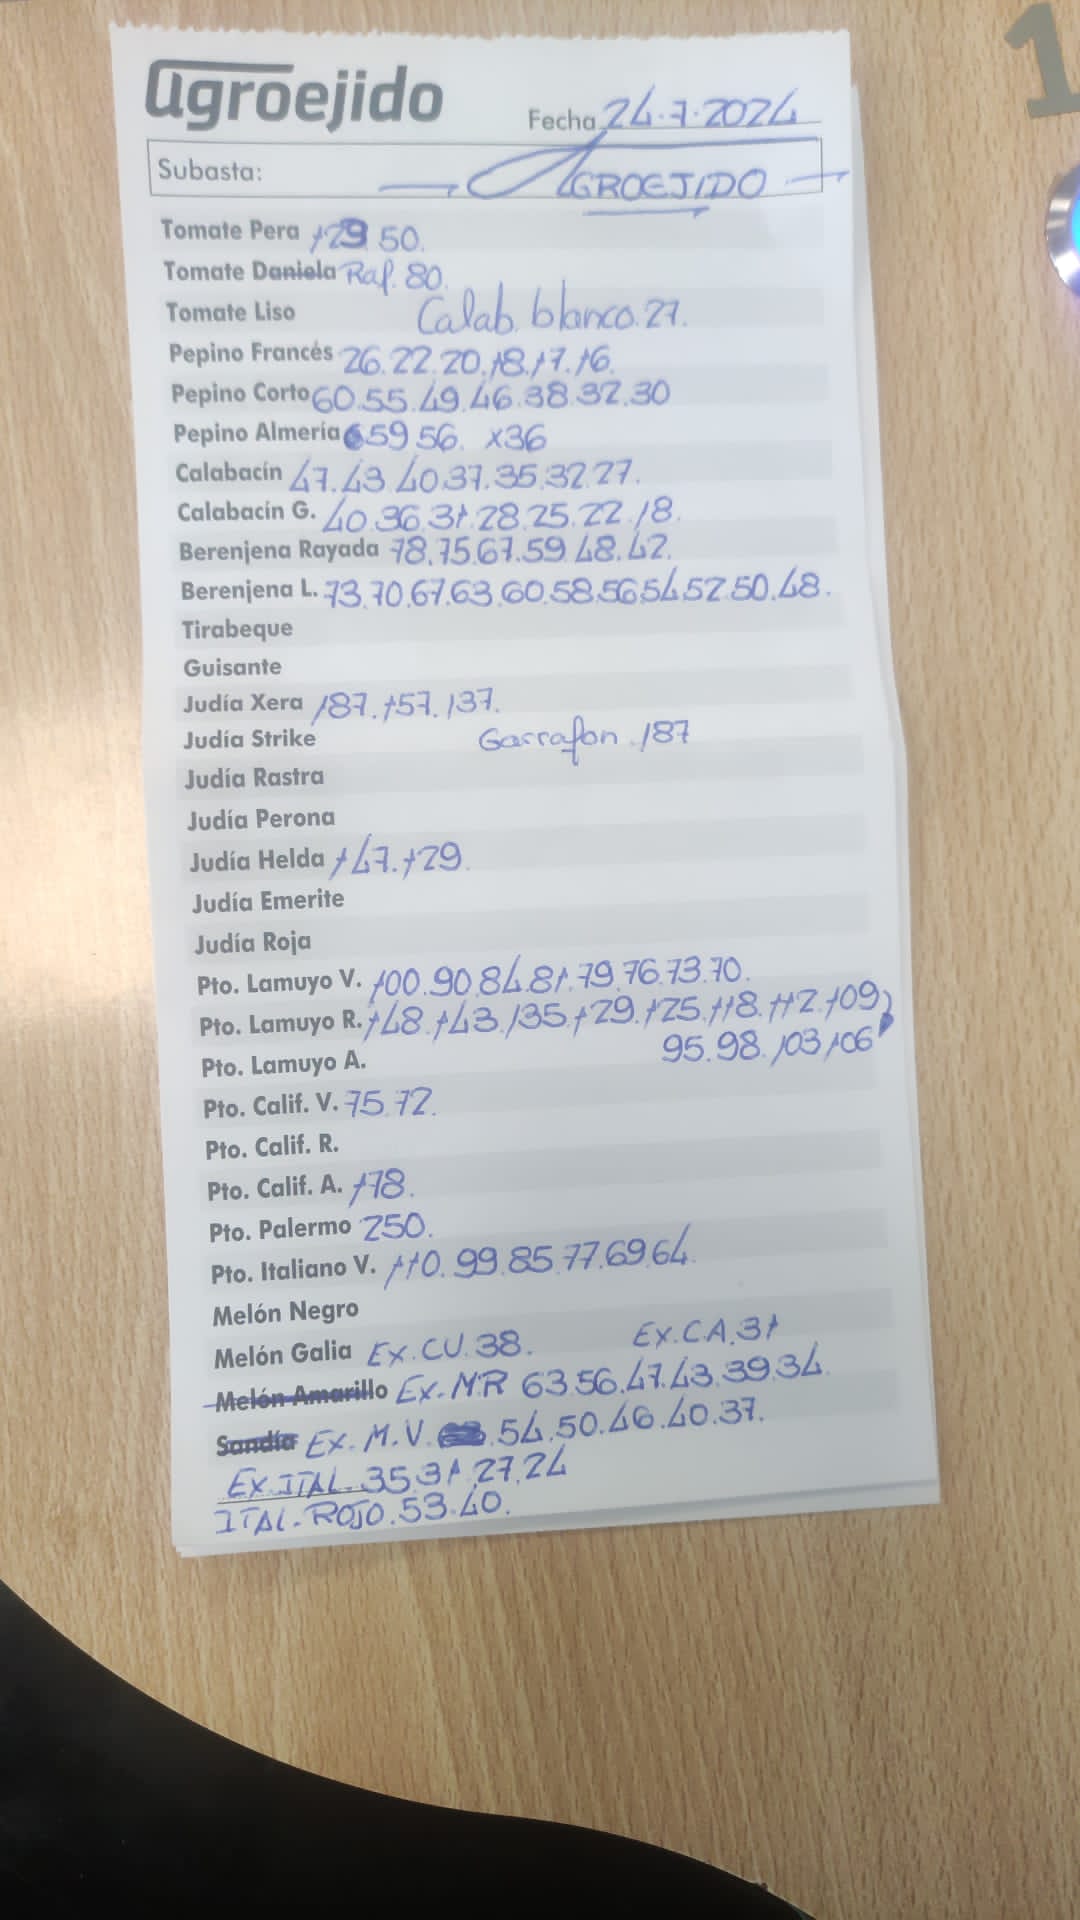 agroejido
Fecha 24.7.2024
Subasta: AGROEJIDO
Tomate Pera 129 50.
Tomate Daniela Raf. 80.
Tomate Liso Calab. blanco. 27.
Pepino Francés 26.22.20.18.17.16.
Pepino Corto 60.55.49.46.38.32.30
Pepino Almería 59 56. x36
Calabacín 47.43.40.37.35.32.27.
Calabacín G. 40.36.31.28.25.22.18.
Berenjena Rayada 78.75.67.59.48.42.
Berenjena L. 73.70.67.63.60.58.56.54.52.50.48.
Tirabeque
Guisante
Judía Xera 187.157.137.
Judía Strike Garrafon. 187
Judía Rastra
Judía Perona
Judía Helda 147.129.
Judía Emerite
Judía Roja
Pto. Lamuyo V. 100.90.84.81.79.76.73.70.
Pto. Lamuyo R. 148.143.135.129.125.118.112.109
Pto. Lamuyo A. 95.98.103.106
Pto. Calif. V. 75.72.
Pto. Calif. R.
Pto. Calif. A. 178.
Pto. Palermo 250.
Pto. Italiano V. 110.99.85.77.69.64.
Melón Negro
Melón Galia Ex.CU.38. Ex.CA.31
Melón Amarillo Ex.MR 63.56.47.43.39.34.
Sandía Ex.M.V. 54.50.46.40.37.
EX.ITAL.35.31.27.24
ITAL.ROJO.53.40.
1